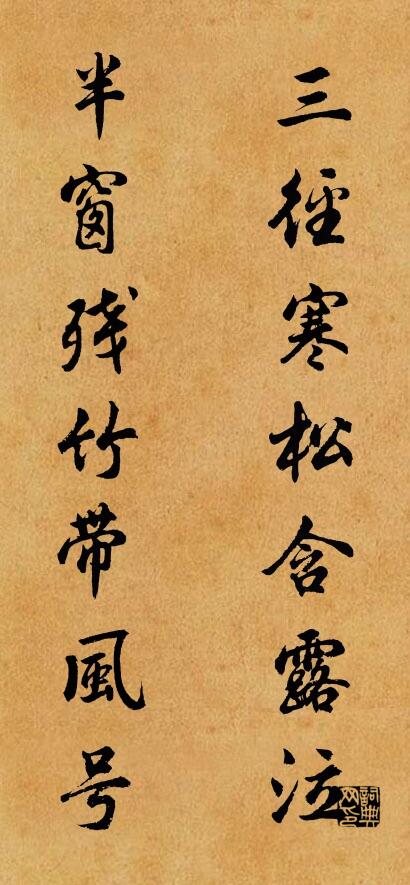 三徑寒松含露泣
半窗殘竹帶風号
詞典网印